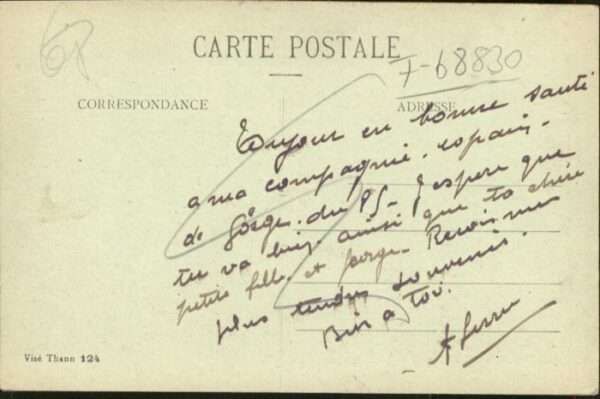 68
CARTE POSTALE
7-68830
CORRESPONDANCE
ADRESSE
Toujour en bonne santé
a ma compagnie. copains.
de Gorge. du PS. J'espere que
tu va bien ainsi que ta chère
petite fille. et Jorge. Recois mes
plus tendres souvenirs.
Bis a Toi.
Visé Thann 124